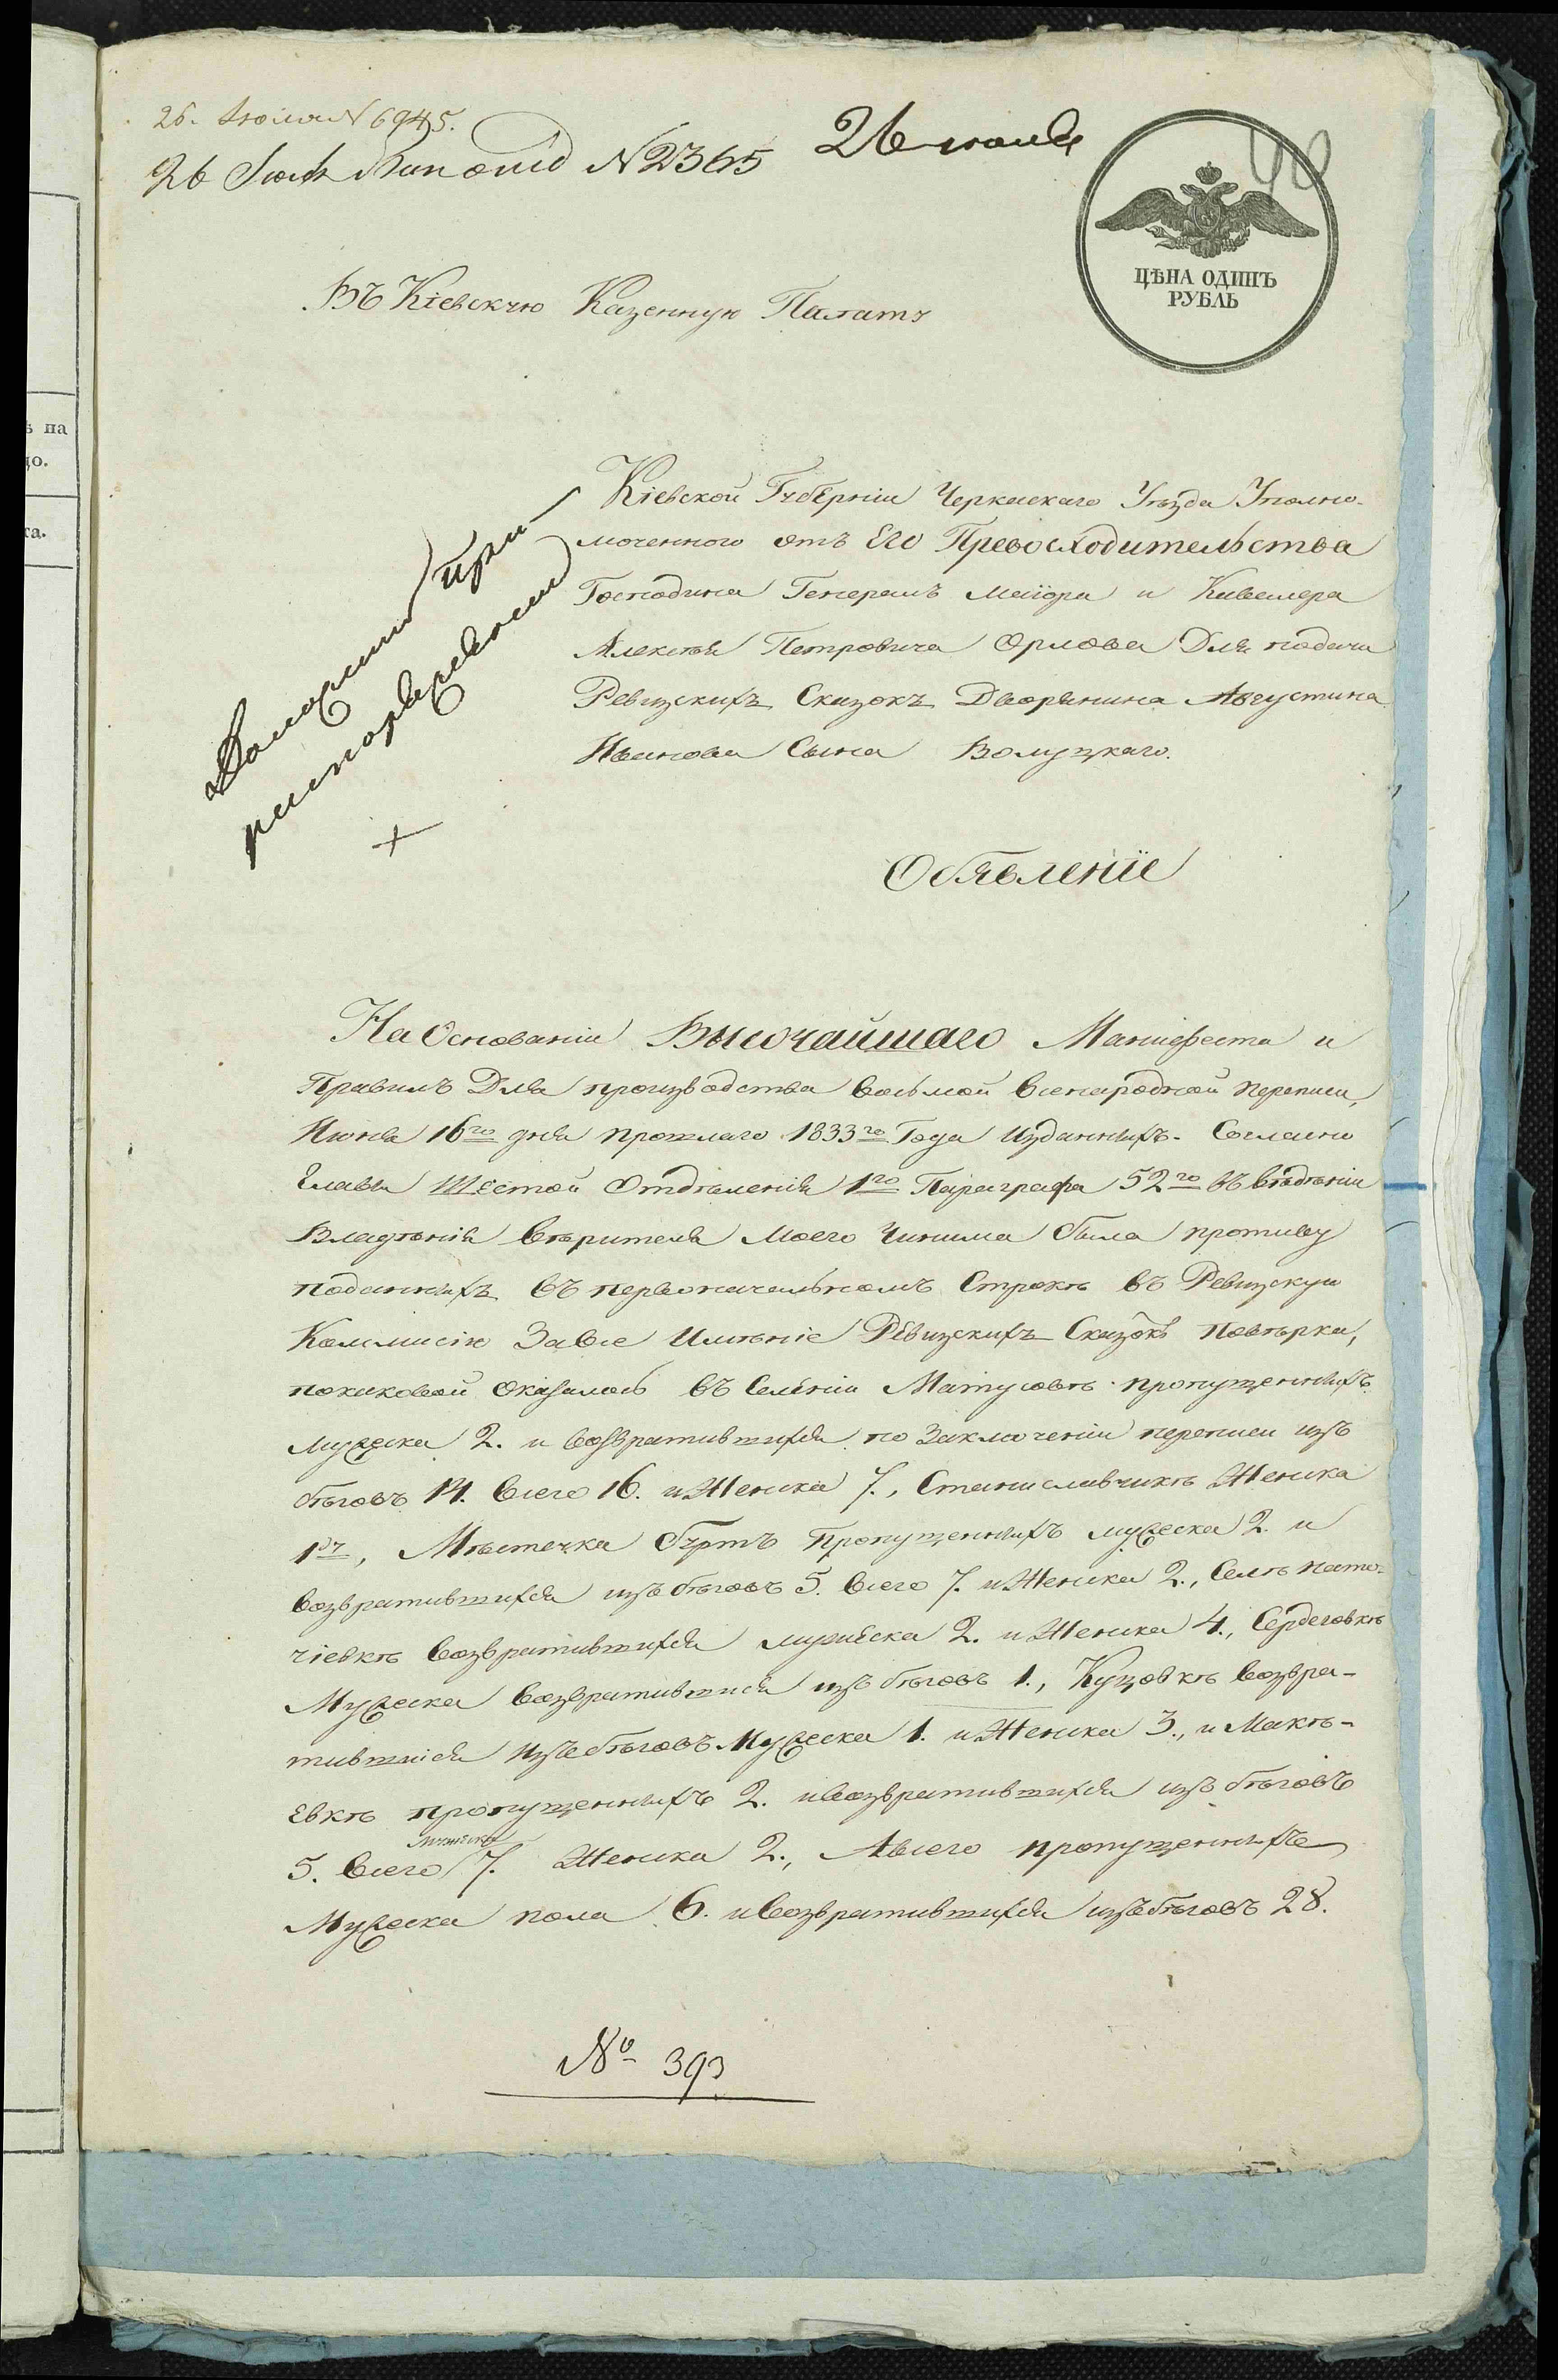 26. Июля N 6945.
26 N 2365
26 июля
40
ЦѢНА ОДИНЪ
РУБЛЬ
Въ Кіевскую Казенную Палату
Кіевской Губерніи Черкаскаго Уѣзда Уполно-
моченного отъ Его Превосходительства
Господина Генералъ Маіора и Кавалера
Алексѣя Петровича Орлова Для подачи
Ревизскихъ Сказокъ Дворянина Августина
Иванова Сына Волуцкаго.
Обявленіе
На Основаніи Высочайшаго Манифеста и
Правилъ Для производства восьмой всенародной переписи,
Июня 16го дня прошлаго 1833го Года Изданныхъ. Согласно
Главы Шестой Отдѣленія 1го Параграфа 52го въ вѣдѣніи
Владѣнія вѣрителя Моего Чинима была противу
поданныхъ въ первоначальномъ Строкѣ въ Ревизскую
Коммисію За все Имѣніе Ревизскихъ Сказокъ Повѣрка,
по каковой оказалось въ Селеніи Матусовѣ пропущенныхъ
мужеска 2. и возвратившихся по Заключеніи переписи изъ
бѣговъ 14. всего 16. и Женска 7., Станиславчикѣ Женска
1ну, Мѣстечка Буртъ Пропущенныхъ мужеска 2. и
возвратившихся изъ бѣговъ 5. всего 7. и Женска 2., Селѣ Пато-
чіевкѣ возвратившихся мужеска 2. и Женска 4., Сердеговкѣ
Мужеска возвратившися изъ бѣговъ 1., Куцовкѣ возвра-
тившися изъ бѣговъ Мужеска 1. и Женска 3., и Макѣ-
евкѣ пропущенныхъ 2. и возвратившихся изъ бѣговъ
мужеска
5. всего 7. Женска 2., А всего пропущенныхъ
Мужеска пола 6. и возвратившихся изъ бѣговъ 28.
№ 393
ъ на
до.
та.